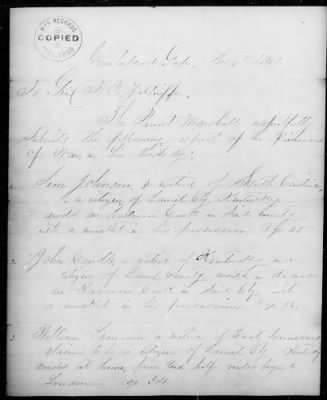 WAR RECORDS
COPIED
1861-1865
Cumberland Gap,
To Genl F. K. Zollicoffer
The Provost Marshall respectfully
submits the following report of the Prisoners
of War in his custody:
1 Sim Johnson, a native of South Carolina,
a citizen of Laurel Cty, Kentucky
arrested on Raccoon Creek in said County
with a musket in his possession Age 45
2 John Cundle a native of Kentucky and
citizen of Laurel County
on Raccoon Creek in said Cty with
a musket in his possession Age
3 William a native of East Tennessee
claims to be a citizen of Laurel Cty
arrested at home, four and half miles beyond
London Age 24